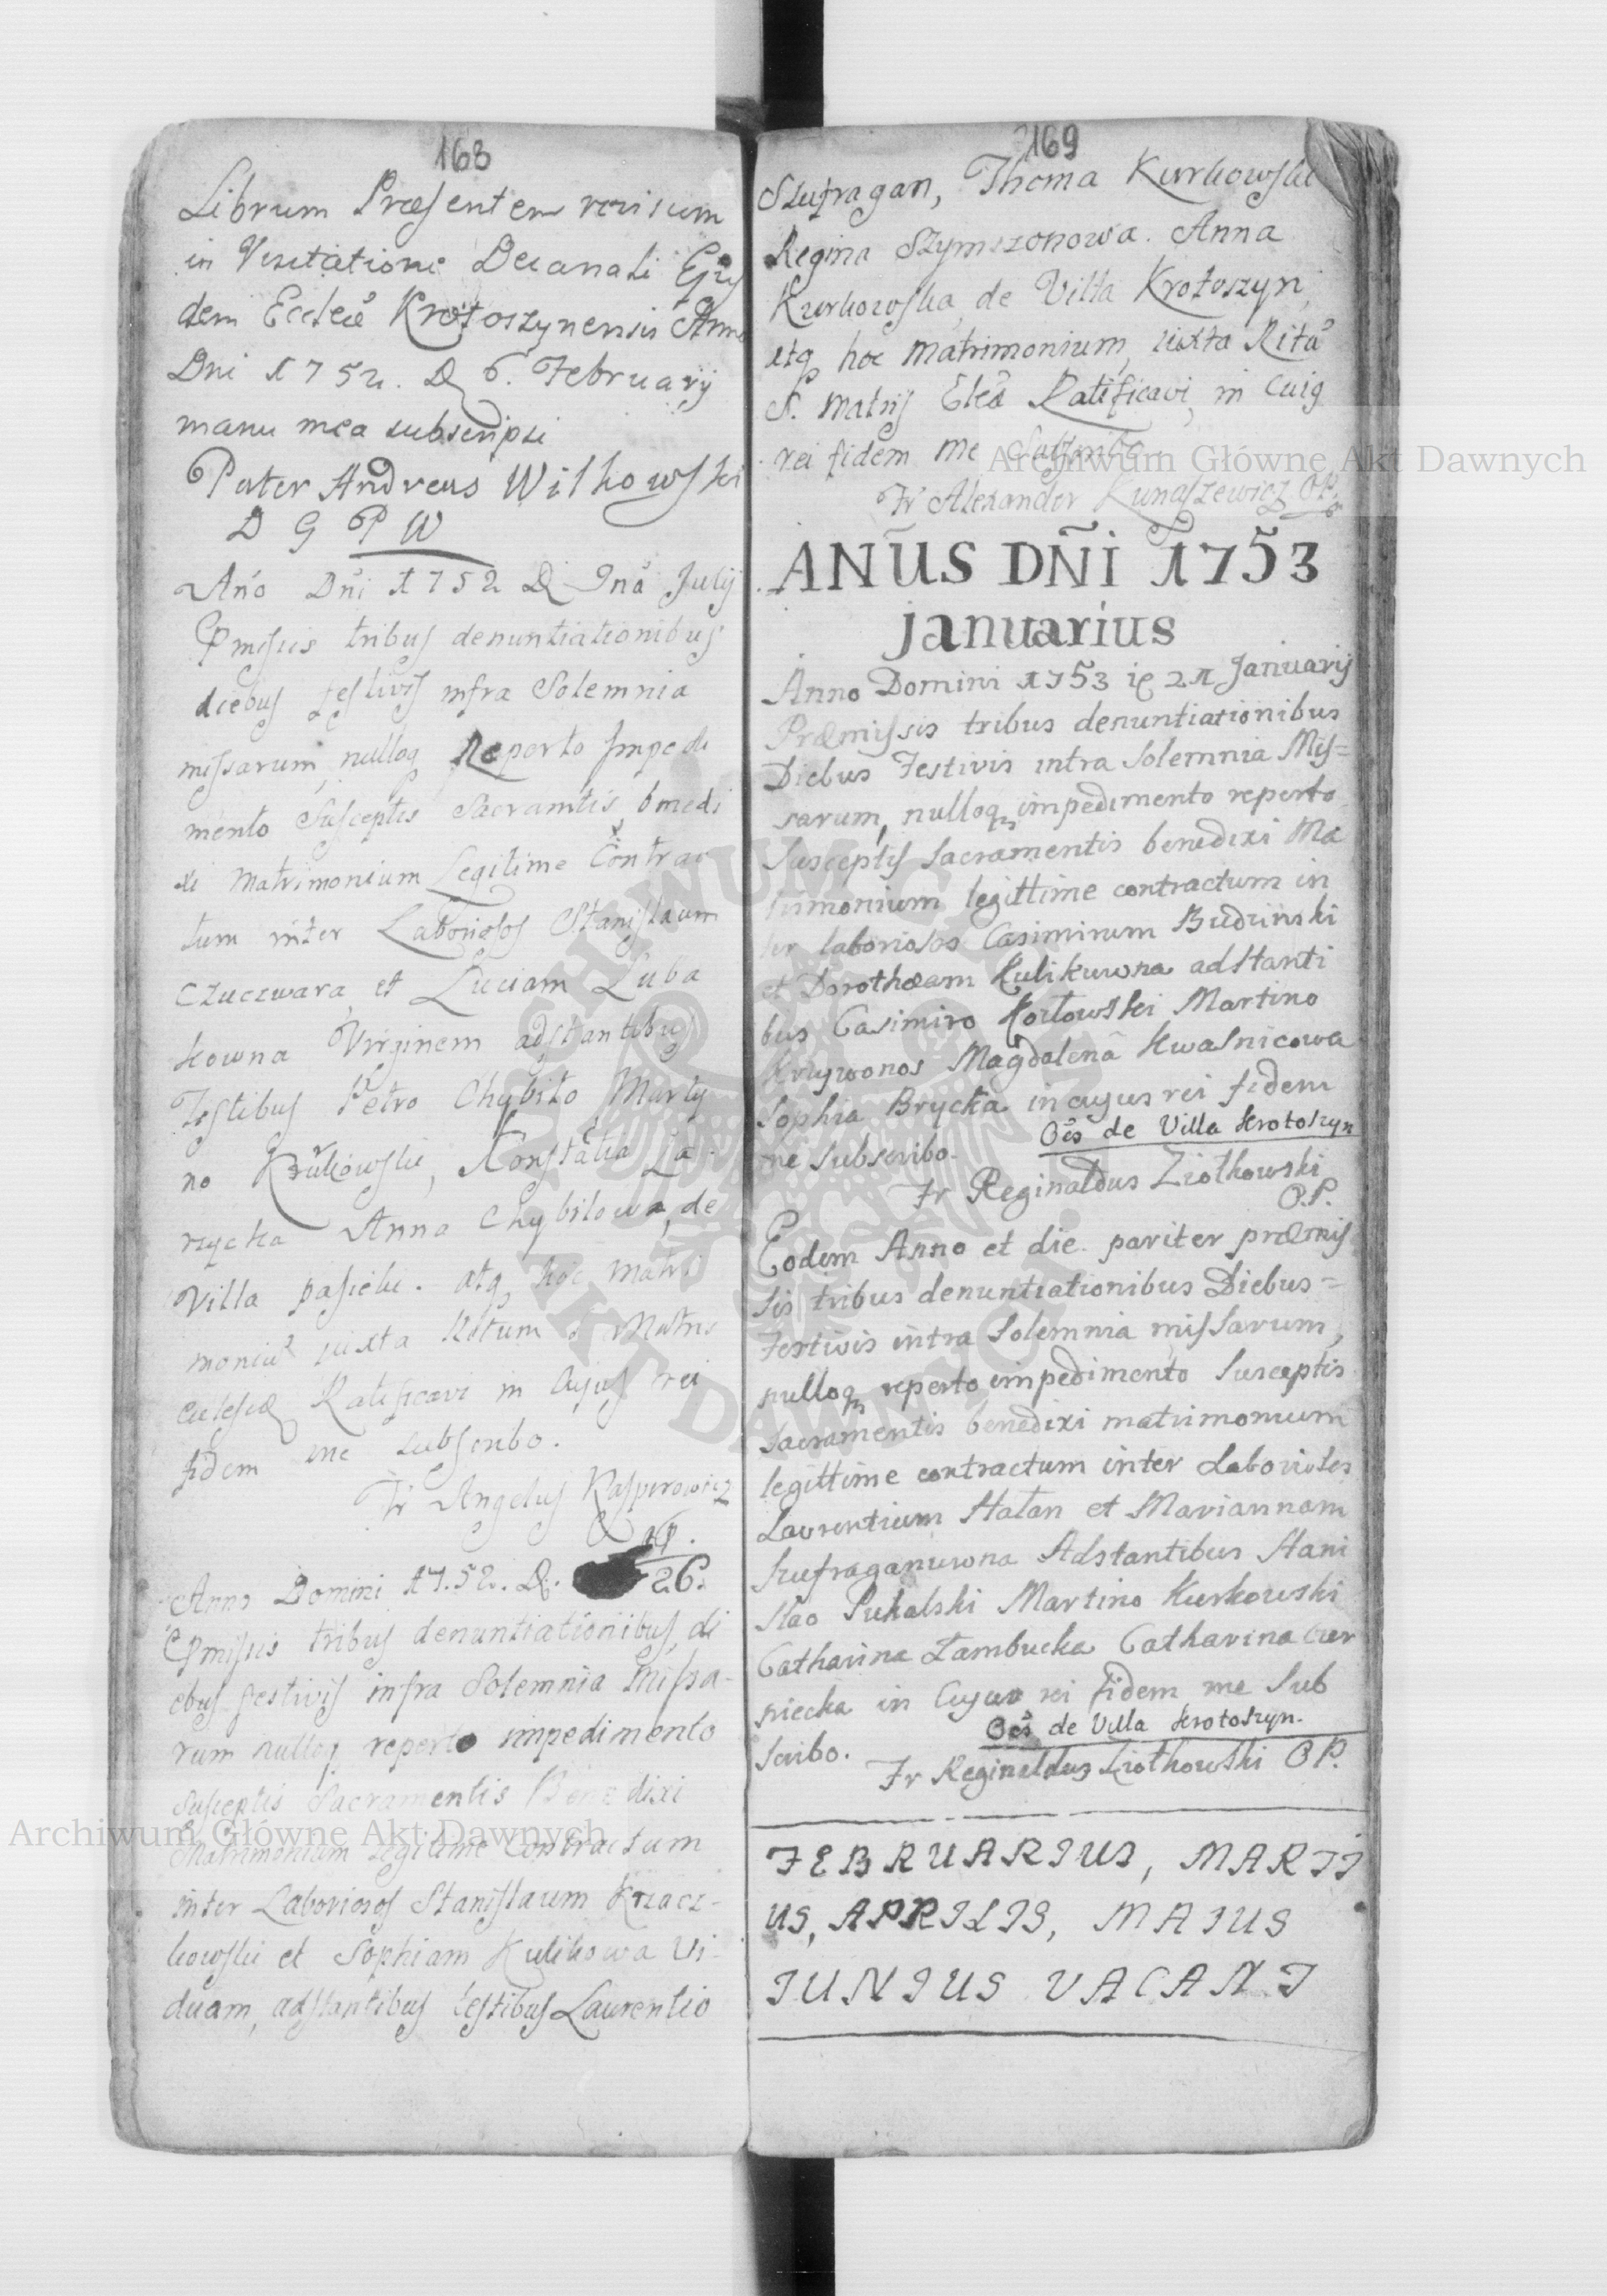 168
Librum Præsentem revisum
in Visitatione Decanali Ejus
dem Eccleæ Krotoszynensis Anno
Dni 1752. D 6. February
manu mea subscripsi
Pater Andreas Wilkowski
D G P W
Año Dñi 1752 D 2na July
Pmissis tribus denuntiationibus
diebus festivis infra Solemnia
missarum, nulloq Reperto Impedi
mento Susceptis Sacramtis, bnedi
xi Matrimonium Legitime Contrac
tum inter Laboriosos Stanislaum
Czuczwara et Luciam Luba
kowna Virginem adstantibus
Testibus Petro Chybiło Marty
no Krukowski, Konstatia La
rzycka Anna Chybiłowa, de
Villa pasieki. atq hoc Matri
moniu iuxta Ritum S Matris
Eclesiæ Ratificavi in Cujus rei
fidem me subscribo.
Fr Angelus Kasperowicz
OP.
Anno Domini 17.52. D. 26.
Pmissis tribus denuntiationiibus, di
ebus festivis infra Solemnia Missa-
rum nulloq reperto impedimento
Susceptis Sacramentis Benedixi
Matrimonium Legitime Contractum
inter Laboriosos Stanislaum Krzacz-
kowski et Sophiam Kulikowa Vi-
duam, adstantibus testibus Laurentio
169
Szufragan, Thoma Kurkowski
Regina Szymczonowa. Anna
Kurkowska de Villa Krotoszyn,
atq hoc matrimonium, iuxta Ritu
S. Matris Eleæ Ratificavi, in Cuig
rei fidem me Subscribo
Fr Alexander Kunaszewicz OP.
ANŨS DÑI 1753
januarius
Anno Domini 1753 ie 21 Januarij
Præmissis tribus denuntiationibus
Diebus Festivis intra Solemnia Mis=
sarum, nulloq impedimento reperto
Susceptis Sacramentis benedixi Ma
trimonium legittime contractum in
ter laboriosos Casimirum Budzinski
et Dorothæam Kulikuwna adstanti
bus Casimiro Kozłowski Martino
Krzywonos Magdalena Kwasnicowa
Sophia Brycka in cujus rei fidem
Oẽs de Villa Krotoszyn
me Subscribo.
Fr Reginaldus Ziołkowski
O.P.
Eodem Anno et die. pariter præmis
sis tribus denuntiationibus Diebus=
Festivis intra Solemnia missarum,
nulloq reperto impedimento Susceptis
Sacramentis benedixi matrimonium
legittime contractum inter Laboriosos
Laurentium Hałan et Mariannam
Szufraganuwna Adstantibus Stani
slao Puhalski Martino Kurkowski
Catharina Łambucka Catharina Czer
niecka in Cujus rei fidem me Sub
Oẽs de Villa Krotoszyn.
scribo.
Fr Reginaldus Ziołkowski OP.
FEBRUARIUS, MARTI
US, APRILIS, MAIUS
IUNIUS VACANT
Archiwum Główne Akt Dawnych
Archiwum Główne Akt Dawnych
ARCHIWUM GŁÓWNE
AKT DAWNYCH